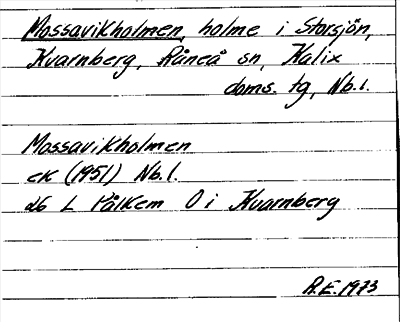 Mossavikholmen, holme i Storsjön,
Kvarnberg, Råneå sn, Kalix
doms. tg, Nb.l.
Mossavikholmen
ek (1951) Nb.l.
26 L Pålkem O i Kvarnberg
R.E. 1973